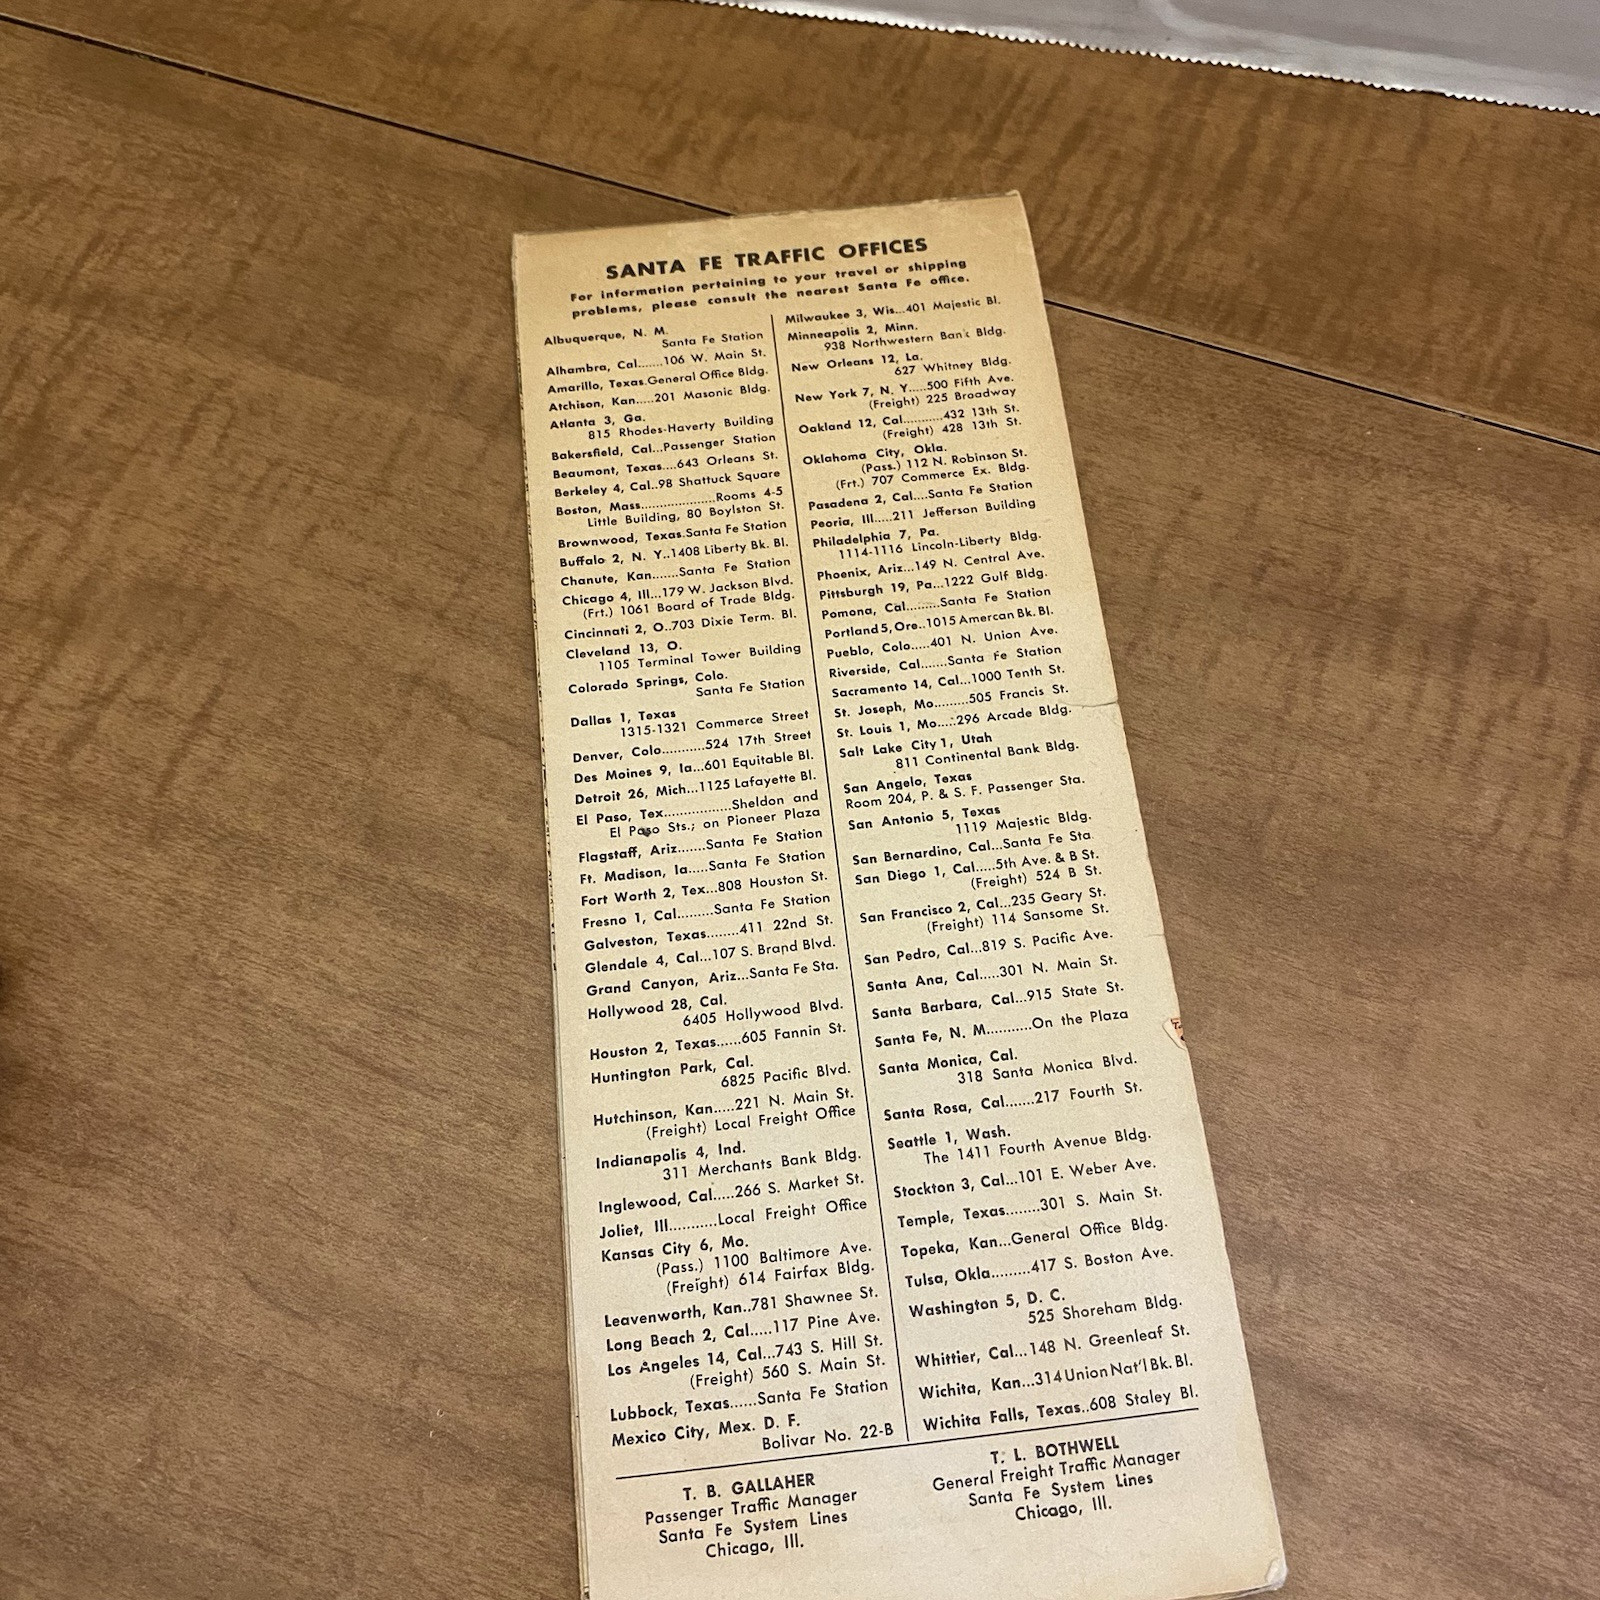 SANTA FE TRAFFIC OFFICES
For information pertaining to your travel or shipping
problems, please consult the nearest Santa Fe office.
Albuquerque, N. M.
Santa Fe Station
Alhambra, Cal.......106 W. Main St.
Amarillo, Texas.General Office Bldg.
Atchison, Kan.....201 Masonic Bldg.
Atlanta 3, Ga.
815 Rhodes-Haverty Building
Bakersfield, Cal...Passenger Station
Beaumont, Texas....643 Orleans St.
Berkeley 4, Cal..98 Shattuck Square
Boston, Mass.....................Rooms 4-5
Little Building, 80 Boylston St.
Brownwood, Texas.Santa Fe Station
Buffalo 2, N. Y..1408 Liberty Bk. Bl.
Chanute, Kan.......Santa Fe Station
Chicago 4, Ill...179 W. Jackson Blvd.
(Frt.) 1061 Board of Trade Bldg.
Cincinnati 2, O..703 Dixie Term. Bl.
Cleveland 13, O.
1105 Terminal Tower Building
Colorado Springs, Colo.
Santa Fe Station
Dallas 1, Texas
1315-1321 Commerce Street
Denver, Colo...........524 17th Street
Des Moines 9, Ia...601 Equitable Bl.
Detroit 26, Mich...1125 Lafayette Bl.
El Paso, Tex.................Sheldon and
El Paso Sts.; on Pioneer Plaza
Flagstaff, Ariz.......Santa Fe Station
Ft. Madison, Ia.....Santa Fe Station
Fort Worth 2, Tex...808 Houston St.
Fresno 1, Cal.........Santa Fe Station
Galveston, Texas........411 22nd St.
Glendale 4, Cal...107 S. Brand Blvd.
Grand Canyon, Ariz...Santa Fe Sta.
Hollywood 28, Cal.
6405 Hollywood Blvd.
Houston 2, Texas......605 Fannin St.
Huntington Park, Cal.
6825 Pacific Blvd.
Hutchinson, Kan.....221 N. Main St.
(Freight) Local Freight Office
Indianapolis 4, Ind.
311 Merchants Bank Bldg.
Inglewood, Cal.....266 S. Market St.
Joliet, Ill...........Local Freight Office
Kansas City 6, Mo.
(Pass.) 1100 Baltimore Ave.
(Freight) 614 Fairfax Bldg.
Leavenworth, Kan..781 Shawnee St.
Long Beach 2, Cal.....117 Pine Ave.
Los Angeles 14, Cal...743 S. Hill St.
(Freight) 560 S. Main St.
Lubbock, Texas......Santa Fe Station
Mexico City, Mex. D. F.
Bolivar No. 22-B
Milwaukee 3, Wis...401 Majestic Bl.
Minneapolis 2, Minn.
938 Northwestern Bank Bldg.
New Orleans 12, La.
627 Whitney Bldg.
New York 7, N. Y.....500 Fifth Ave.
(Freight) 225 Broadway
Oakland 12, Cal..........432 13th St.
(Freight) 428 13th St.
Oklahoma City, Okla.
(Pass.) 112 N. Robinson St.
(Frt.) 707 Commerce Ex. Bldg.
Pasadena 2, Cal....Santa Fe Station
Peoria, Ill.....211 Jefferson Building
Philadelphia 7, Pa.
1114-1116 Lincoln-Liberty Bldg.
Phoenix, Ariz...149 N. Central Ave.
Pittsburgh 19, Pa...1222 Gulf Bldg.
Pomona, Cal.........Santa Fe Station
Portland 5, Ore..1015 Amercan Bk. Bl.
Pueblo, Colo.....401 N. Union Ave.
Riverside, Cal.......Santa Fe Station
Sacramento 14, Cal...1000 Tenth St.
St. Joseph, Mo.........505 Francis St.
St. Louis 1, Mo....:296 Arcade Bldg.
Salt Lake City 1, Utah
811 Continental Bank Bldg.
San Angelo, Texas
Room 204, P. & S. F. Passenger Sta.
San Antonio 5, Texas
1119 Majestic Bldg.
San Bernardino, Cal...Santa Fe Sta
San Diego 1, Cal.....5th Ave. & B St.
(Freight) 524 B St.
San Francisco 2, Cal...235 Geary St.
(Freight) 114 Sansome St.
San Pedro, Cal...819 S. Pacific Ave.
Santa Ana, Cal.....301 N. Main St.
Santa Barbara, Cal...915 State St.
Santa Fe, N. M...........On the Plaza
Santa Monica, Cal.
318 Santa Monica Blvd.
Santa Rosa, Cal.......217 Fourth St.
Seattle 1, Wash.
The 1411 Fourth Avenue Bldg.
Stockton 3, Cal...101 E. Weber Ave.
Temple, Texas........301 S. Main St.
Topeka, Kan...General Office Bldg.
Tulsa, Okla.........417 S. Boston Ave.
Washington 5, D. C.
525 Shoreham Bldg.
Whittier, Cal...148 N. Greenleaf St.
Wichita, Kan...314 Union Nat'l Bk. Bl.
Wichita Falls, Texas..608 Staley Bl.
T. B. GALLAHER
Passenger Traffic Manager
Santa Fe System Lines
Chicago, Ill.
T. L. BOTHWELL
General Freight Traffic Manager
Santa Fe System Lines
Chicago, Ill.